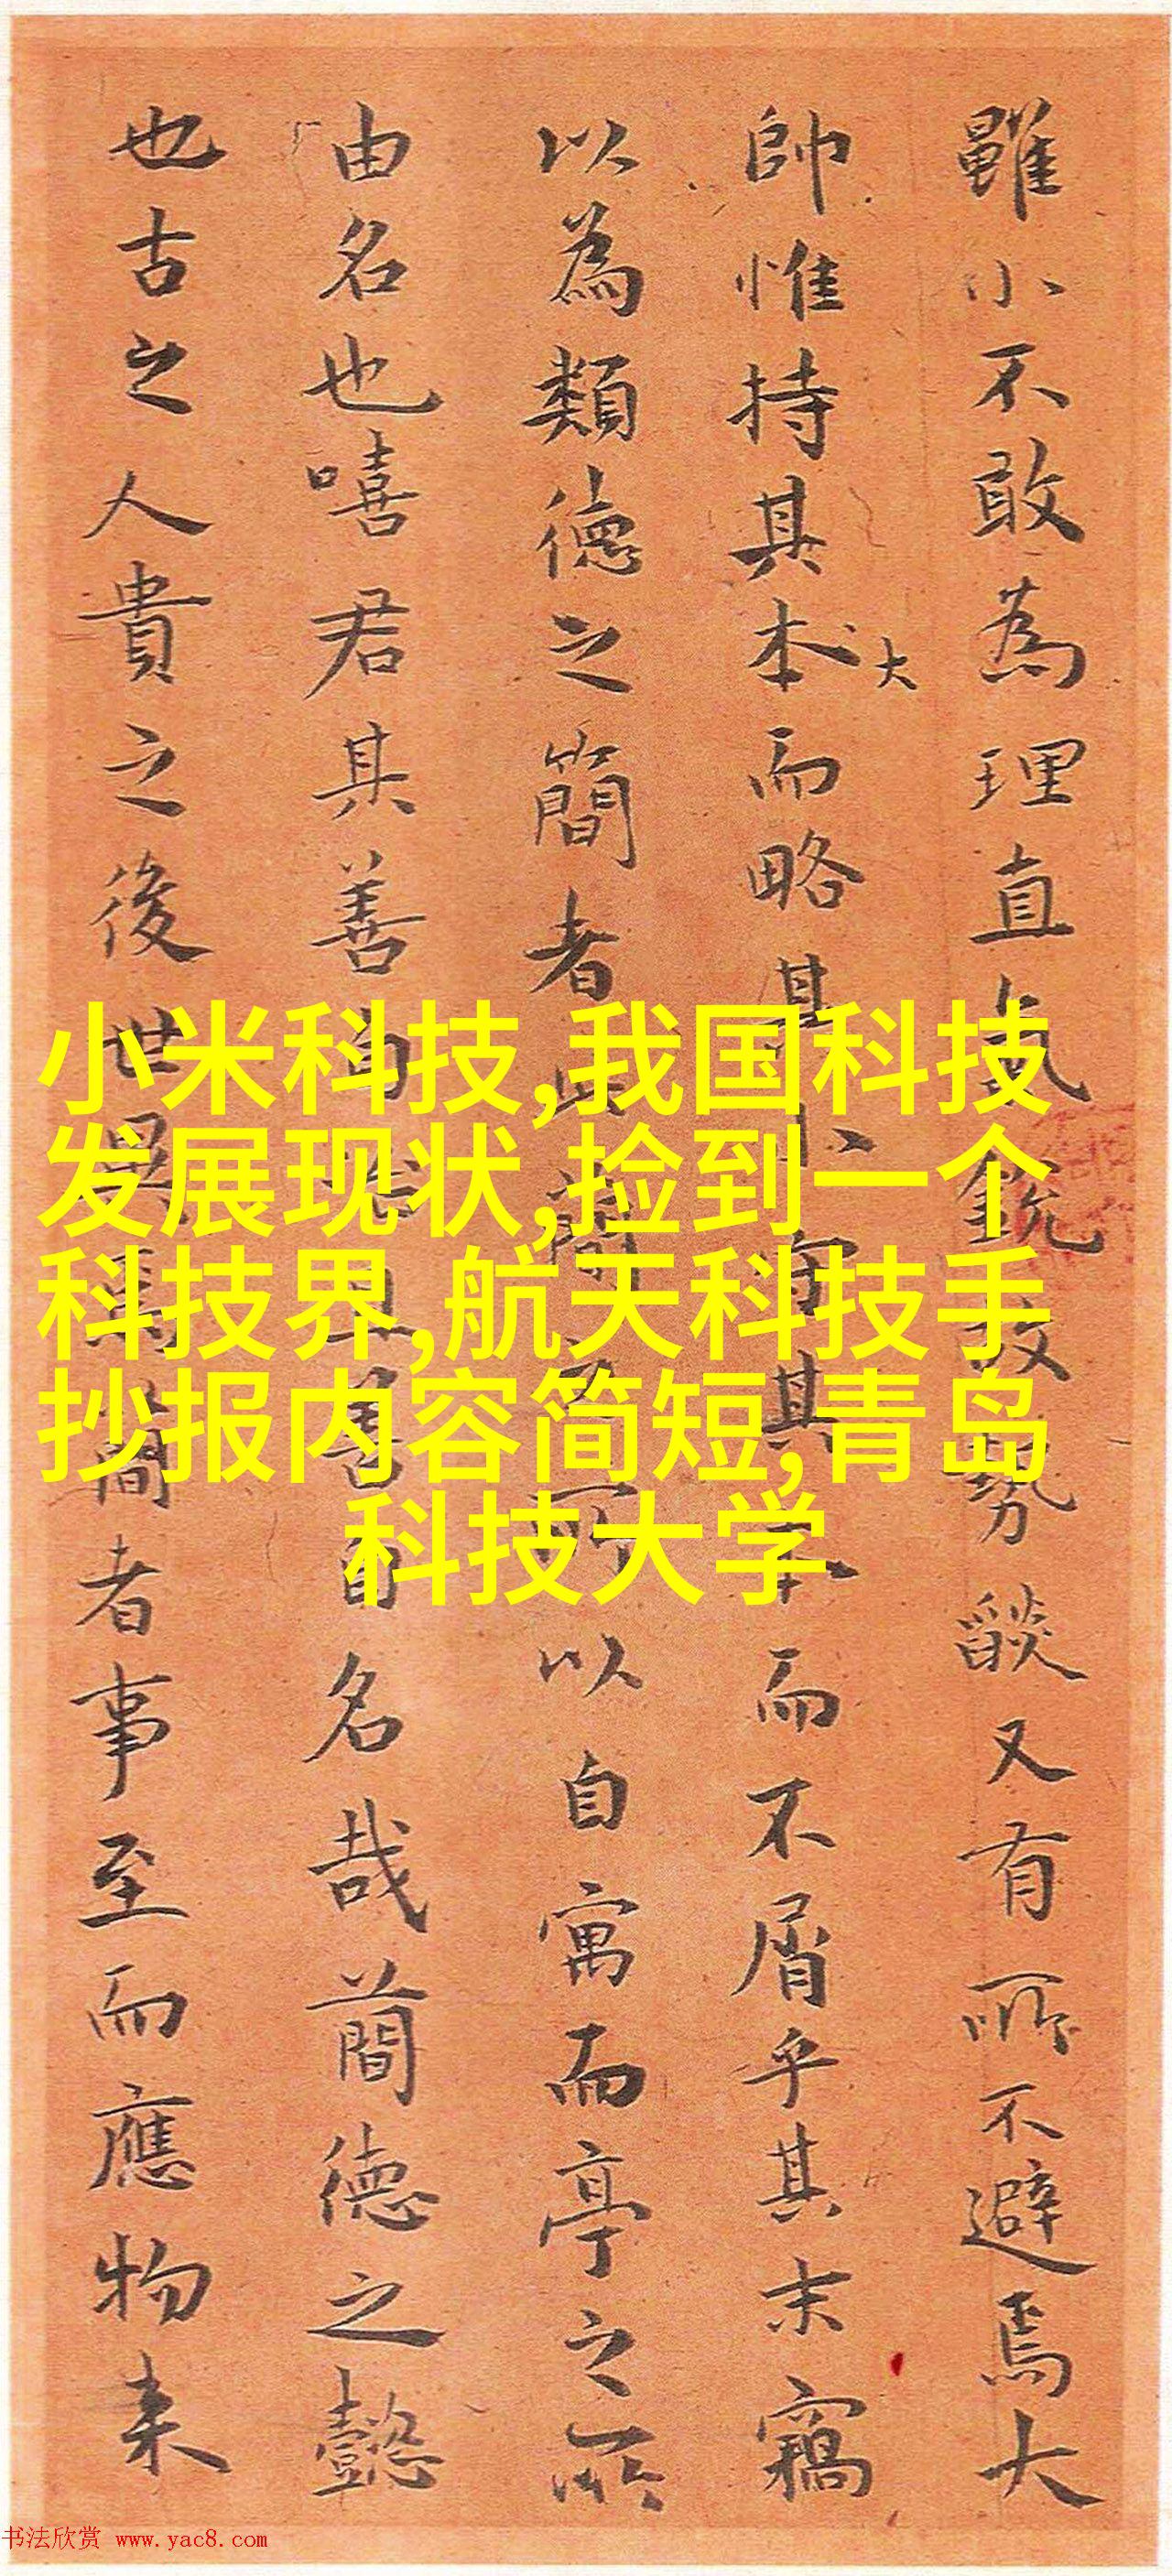 雖小不敢為理直氣銳故勢燄又有所不避焉大
帥惟持其本而略其小守其本而不屑乎其末竊
大
以為類德之簡者此簡之所以自寓而亭之所
由名也嘻君其善為政且善自名哉蕑德之懿
也古之人貴之後世異焉簡者事至而應物来
小米科技,我国科技
发展现状,捡到一个
科技界,航天科技手
抄报内容简短,青岛
科技大学
书法欣赏 www.yac8.com